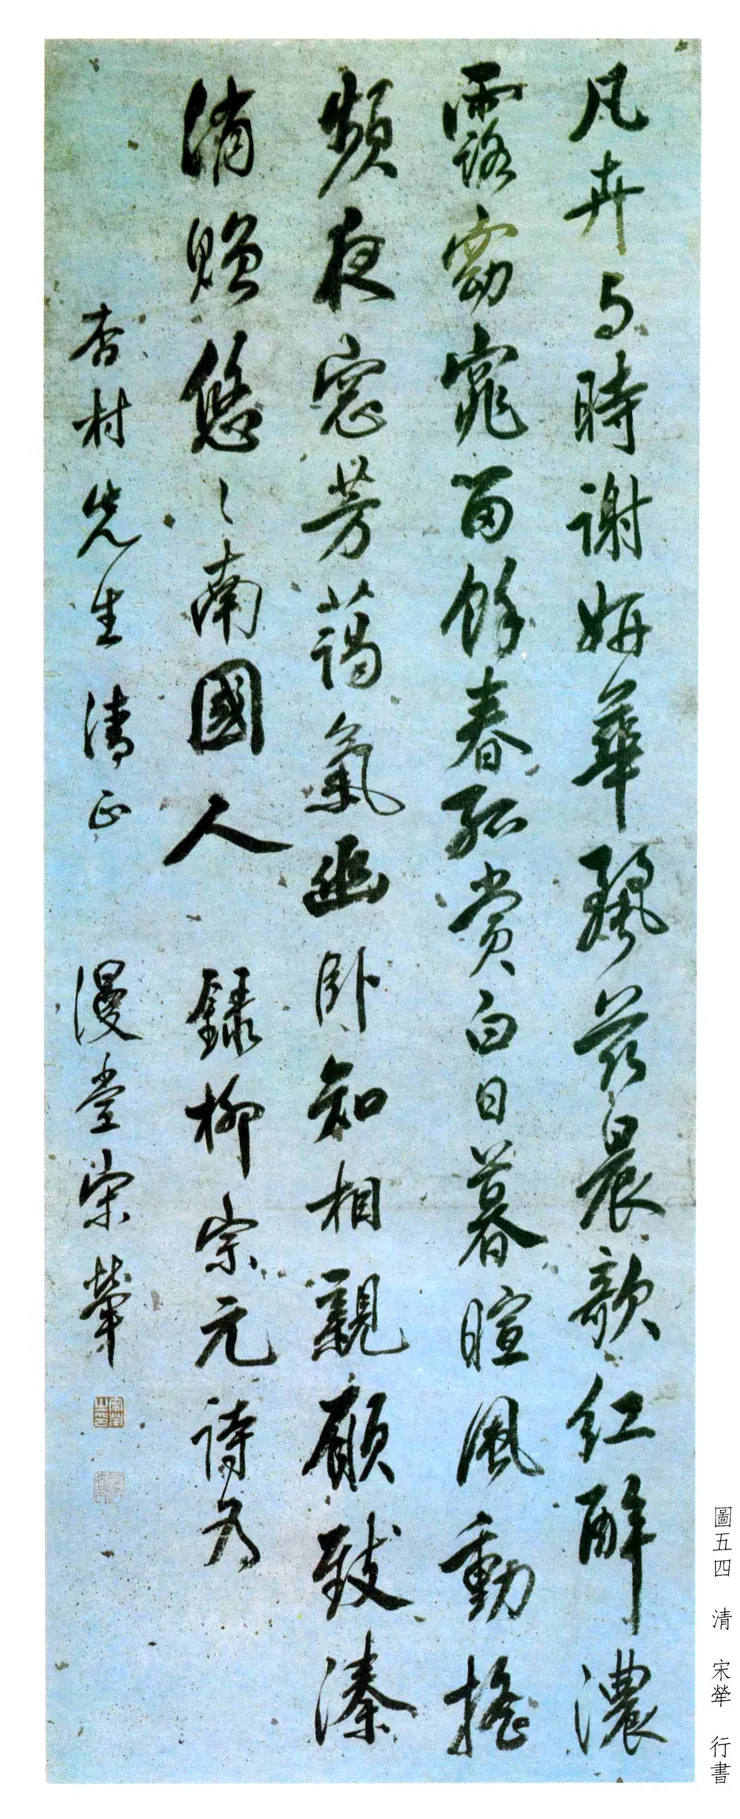 凡卉与時謝妍華麗茲晨欹紅醉濃
露窈窕留餘春孤賞白日暮暄風動搖
頻夜窓芳藹氣幽卧知相親願致溱
洧贈悠〻南國人 録柳宗元詩为
杏村先生清正 漫堂宋犖
圖五四 清 宋犖 行書